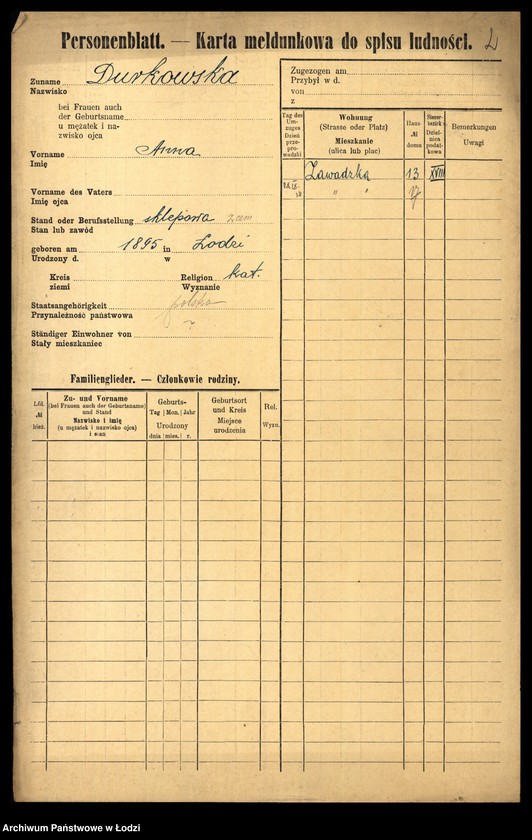 Personenblatt. — Karta meldunkowa do spisu ludności.
Zuname Durkowska
Nazwisko
bei Frauen auch
der Geburtsname
u mężatek i na-
zwisko ojca
Vorname Anna
Imię
Vorname des Vaters
Imię ojca
Stand oder Berufsstellung sklepowa
Stan lub zawód
geboren am 1895 in Łodzi
Urodzony d. w
Kreis Religion kat.
ziemi Wyznanie
Staatsangehörigkeit polska
Przynależność państwowa ?
Ständiger Einwohner von
Stały mieszkaniec
Familienglieder. — Członkowie rodziny.
Lfd. № bież.
Zu- und Vorname
(bei Frauen auch der Geburtsname)
und Stand
Nazwisko i imię
(u mężatek i nazwisko ojca)
i stan
Geburts-
Tag Mon. Jahr
Urodzony
dnia mies. r.
Geburtsort
und Kreis
Miejsce
urodzenia
Rel.
Wyzn.
Zugezogen am
Przybył w d.
von
z
Tag des
Um-
zuges
Dzień
prze-
pro-
wadzki
Wohnung
(Strasse oder Platz)
Mieszkanie
(ulica lub plac)
Haus
№
domu
Steuer-
bezirk
Dziel-
nica
podat-
kowa
Bemerkungen
Uwagi
Zawadzka 13 XVIII
" "
Archiwum Państwowe w Łodzi